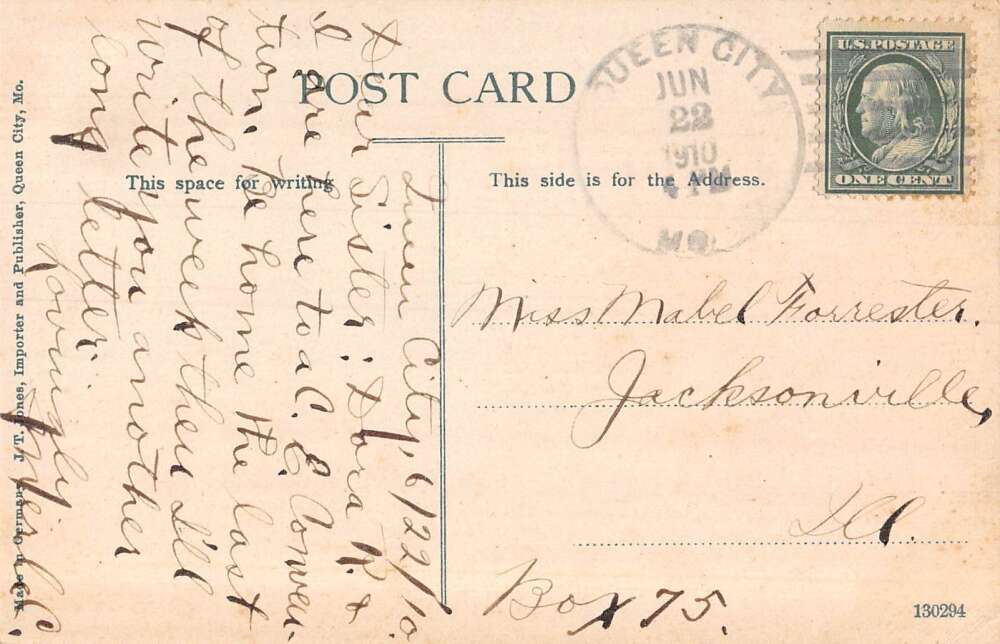 POST CARD
This space for writing
This side is for the Address.
QUEEN CITY
JUN
22
1910
MO.
U.S. POSTAGE
ONE CENT
Queen City, 6/22/10.
Dear Sister: Dora R. &
I are here to a C. E Conven-
tion. Be home the last
of the week then I'll
write you another
long letter.
Lovingly
Miss Mabel Forrester.
Jacksonville,
Ill.
Box 75.
130294
Made in Germany J. T. Jones, Importer and Publisher, Queen City, Mo.